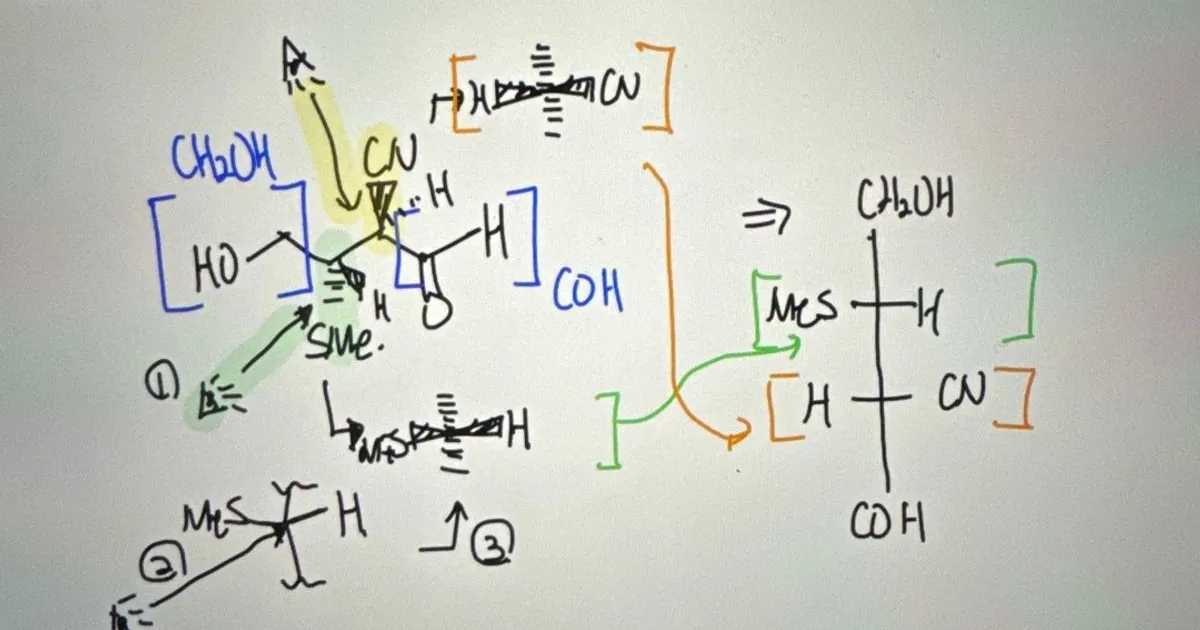 [H CN]
CH₂OH
CN
H
HO
H
COH
H
O
SMe.
①
MeS H
③
MeS H
②
⇒
CH₂OH
[MeS H]
[H CN]
COH